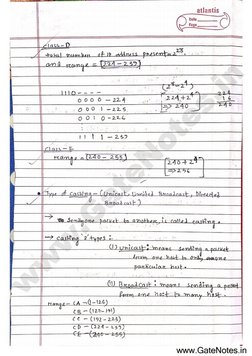 atlantis
Date
Page
Class-D
total number of IP address present = 2²⁸
and range = [224-239]
1110 ----
0000 - 224
0001 - 225
0010 - 226
1111 - 239
(2⁸-2⁴)
224+2⁴
⇒ 240
224
16
240
Class-E
range = [240-255]
240+2⁴
⇒ 256
• Type of casting - (Unicast, Limited Broadcast, Directed
Broadcast)
→ Send one packet to another, is called casting.
→ Casting 2 types:
(i) Unicast: means sending a packet
from one host to only one
particular host.
(ii) Broadcast: means sending a packet
from one host to many host.
range - CA - (1-126)
CB - (128-191)
CC - (192-223)
CD - (224-239)
CE - (240-255)
www.GateNotes.in
www.GateNotes.in